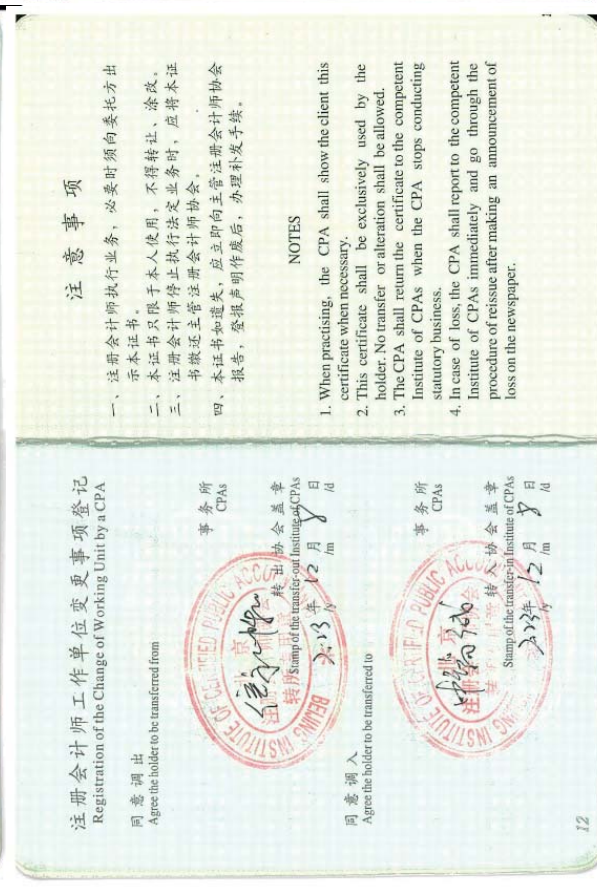 注册会计师工作单位变更事项登记
Registration of the Change of Working Unit by a CPA
同意调出
Agree the holder to be transferred from
事务所
CPAs
BEIJING INSTITUTE OF CERTIFIED PUBLIC ACCOU
转出协会盖章
Stamp of the transfer-out Institute of CPAs
2013年 12月 8日
/y /m /d
同意调入
Agree the holder to be transferred to
事务所
CPAs
BEIJING INSTITUTE OF CERTIFIED PUBLIC ACCOU
转入协会盖章
Stamp of the transfer-in Institute of CPAs
2013年 12月 8日
/y /m /d
12
注意事项
一、注册会计师执行业务，必要时须向委托方出
示本证书。
二、本证书只限于本人使用，不得转让、涂改。
三、注册会计师停止执行法定业务时，应将本证
书缴还主管注册会计师协会。
四、本证书如遗失，应立即向主管注册会计师协会
报告，登报声明作废后，办理补发手续。
NOTES
1. When practising, the CPA shall show the client this
certificate when necessary.
2. This certificate shall be exclusively used by the
holder. No transfer or alteration shall be allowed.
3. The CPA shall return the certificate to the competent
Institute of CPAs when the CPA stops conducting
statutory business.
4. In case of loss, the CPA shall report to the competent
Institute of CPAs immediately and go through the
procedure of reissue after making an announcement of
loss on the newspaper.